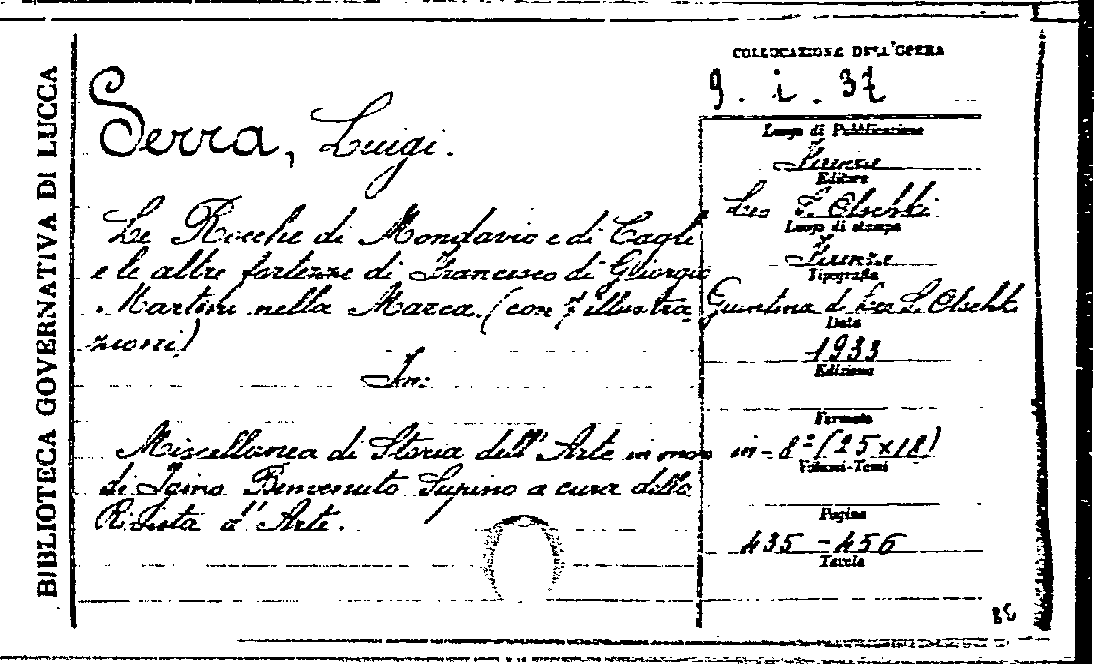 BIBLIOTECA GOVERNATIVA DI LUCCA
Serra, Luigi.
Le Rocche di Mondavio e di Cagli
e le altre fortezze di Francesco di Giorgio
Martini nella Marca. (con 7 illustra
zioni)
In:
Miscellanea di Storia dell'Arte in onore
di Igino Benvenuto Supino a cura della
Rivista d'Arte.
COLLOCAZIONE DELL'OPERA
9. i. 37
Luogo di Pubblicazione
Firenze
Editore
Leo S. Olschki
Luogo di stampa
Firenze
Tipografia
Giuntina di Leo S. Olschki
Data
1933
Edizione
Formato
in-8° (25x18)
Volumi-Tomi
Pagine
435-456
Tavole